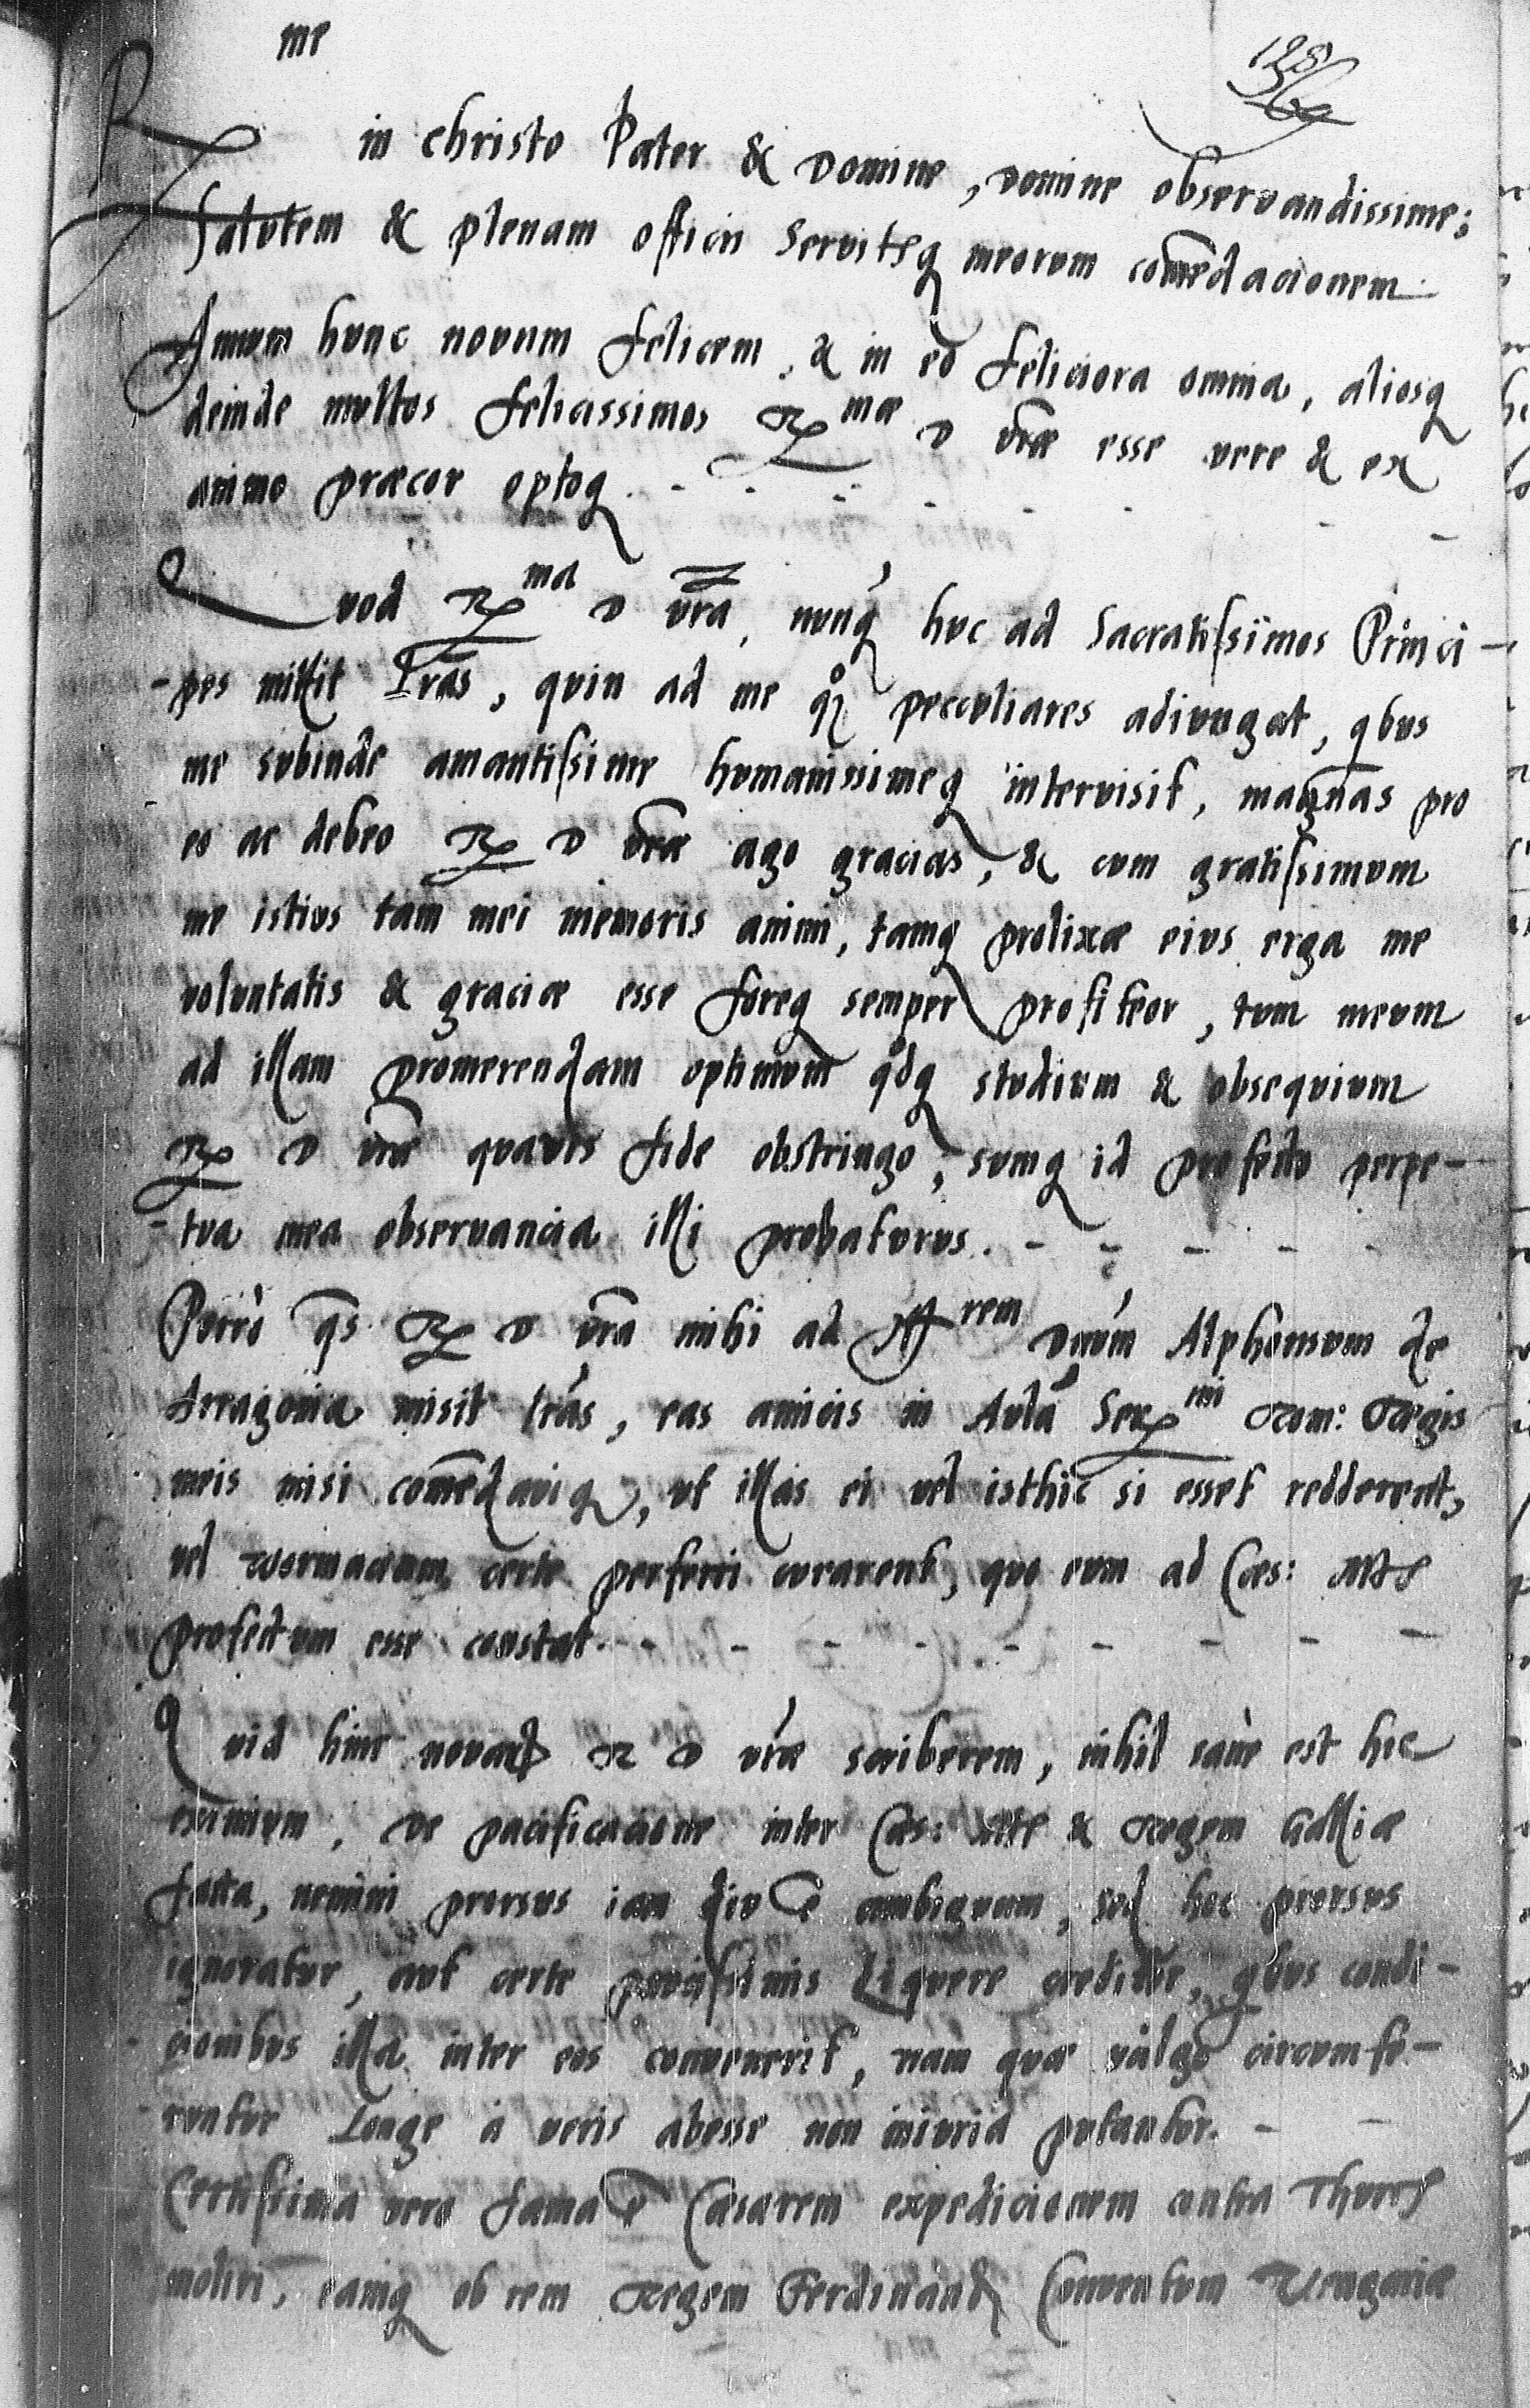 128
R me in Christo Pater & Domine, domine observandissime;
Salutem & plenam officii Servitẽq meorum com̃edacionem
Annum hunc novum felicem, & in eo feliciora omnia, aliosq
deinde multos felicissimos R mæ D vr̃æ esse vere & ex
animo præcor optoq.
Quod R ma D vr̃a, nunq̃ huc ad Sacratissimos Princi-
-pes mittit Lr̃as, quin ad me qo peculiares adiungat, qbus
me subinde amantissime humanissimeq intervisit, magnas pro
eo ac debeo R D vr̃æ ago gracias, & cum gratissimum
me istius tam mei memoris animi, tamq prolixæ eius erga me
voluntatis & graciæ esse foreq semper profiteor, tum meum
ad illam promerendam optimum qdq studium & obsequium
R D vr̃æ quavis fide obstringo, sumq id profecto perpe-
-tua mea observancia illi probaturus.
Porrò qs R D vr̃a mihi ad M rem Dnum Alphonsum de
Arragonia misit lr̃as, eas amicis in Aula Ser mi Rom: Regis
meis misi com̃edaviq, ut illas ei vel isthic si esset redderent,
vel Wormaciam certe perferri curarent, quo eum ad Cæs: Mte
profectum esse constat.
Quid hinc novarũ R D vr̃æ scriberem, nihil sanè est hic
eximium, De pacificacione inter Cæs: Mte & Regem Galliæ
facta, nemini prorsus iam diu ẽ ambiguum, sed hoc prorsus
ignoratur, aut certe paucissimis liquere creditur, qbus condi-
cionibus illa inter eos convenerit, nam quæ vulgo circumfe-
runtur Longe à veris abesse non iniuria putantur.
Certissima vero fama ẽ Cæsarem expedicionem contra Thurcs
moliri, eamq ob rem Regem Ferdinand Conventum Ungariæ